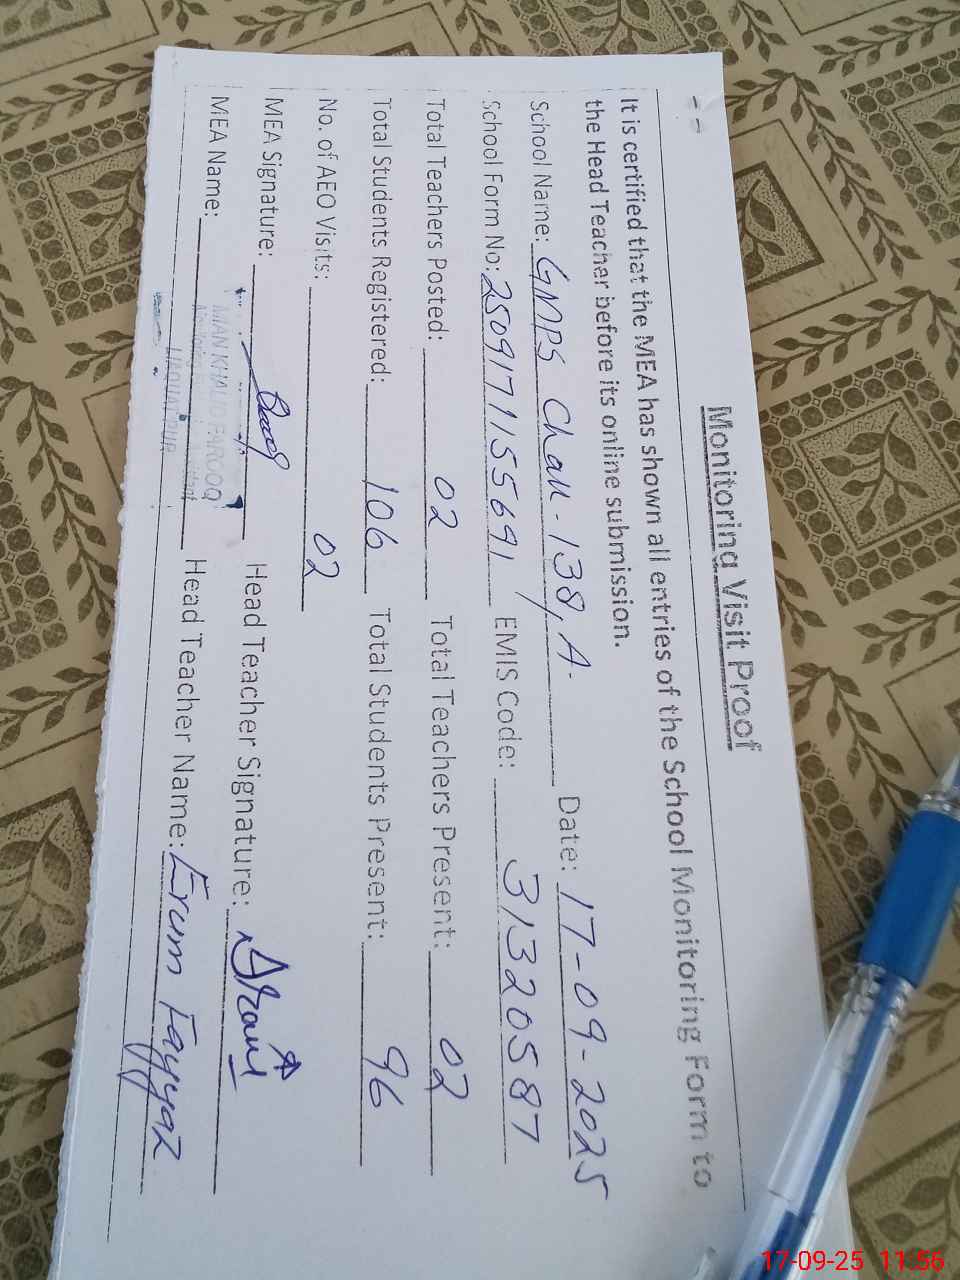 Monitoring Visit Proof
It is certified that the MEA has shown all entries of the School Monitoring Form to
the Head Teacher before its online submission.
School Name: GMPS Chak-138,A- Date: 17-09-2025
School Form No: 25091711555691 EMIS Code: 31320587
Total Teachers Posted: 02 Total Teachers Present: 02
Total Students Registered: 106 Total Students Present: 96
No. of AEO Visits: 02
MEA Signature: Head Teacher Signature:
MEA Name: Head Teacher Name: Erum Fayyaz
KHALID FAROOQ
LIAQUATPUR
17-09-25 11:56